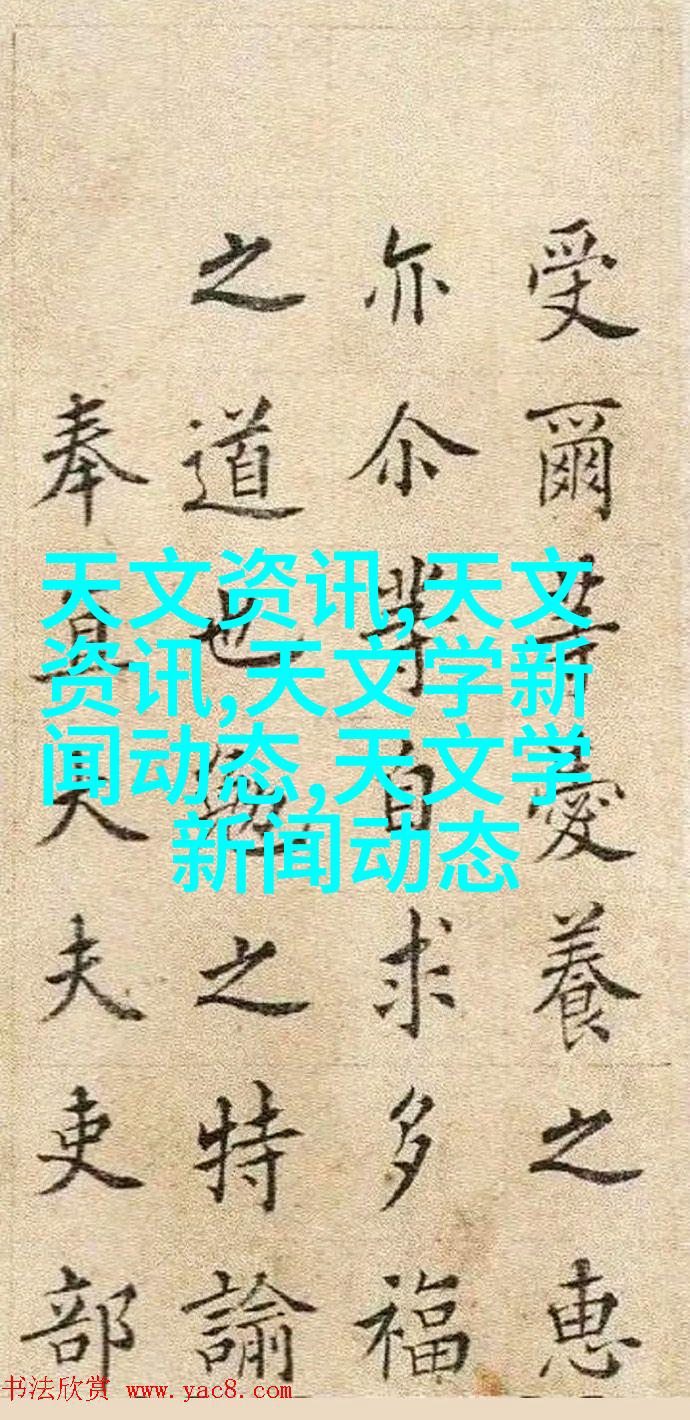 受爾等愛養之惠
亦尒等自求多福
之道也勉之特諭
奉直大夫吏部
天文资讯,天文
资讯,天文学新
闻动态,天文学
新闻动态
书法欣赏 www.yac8.com